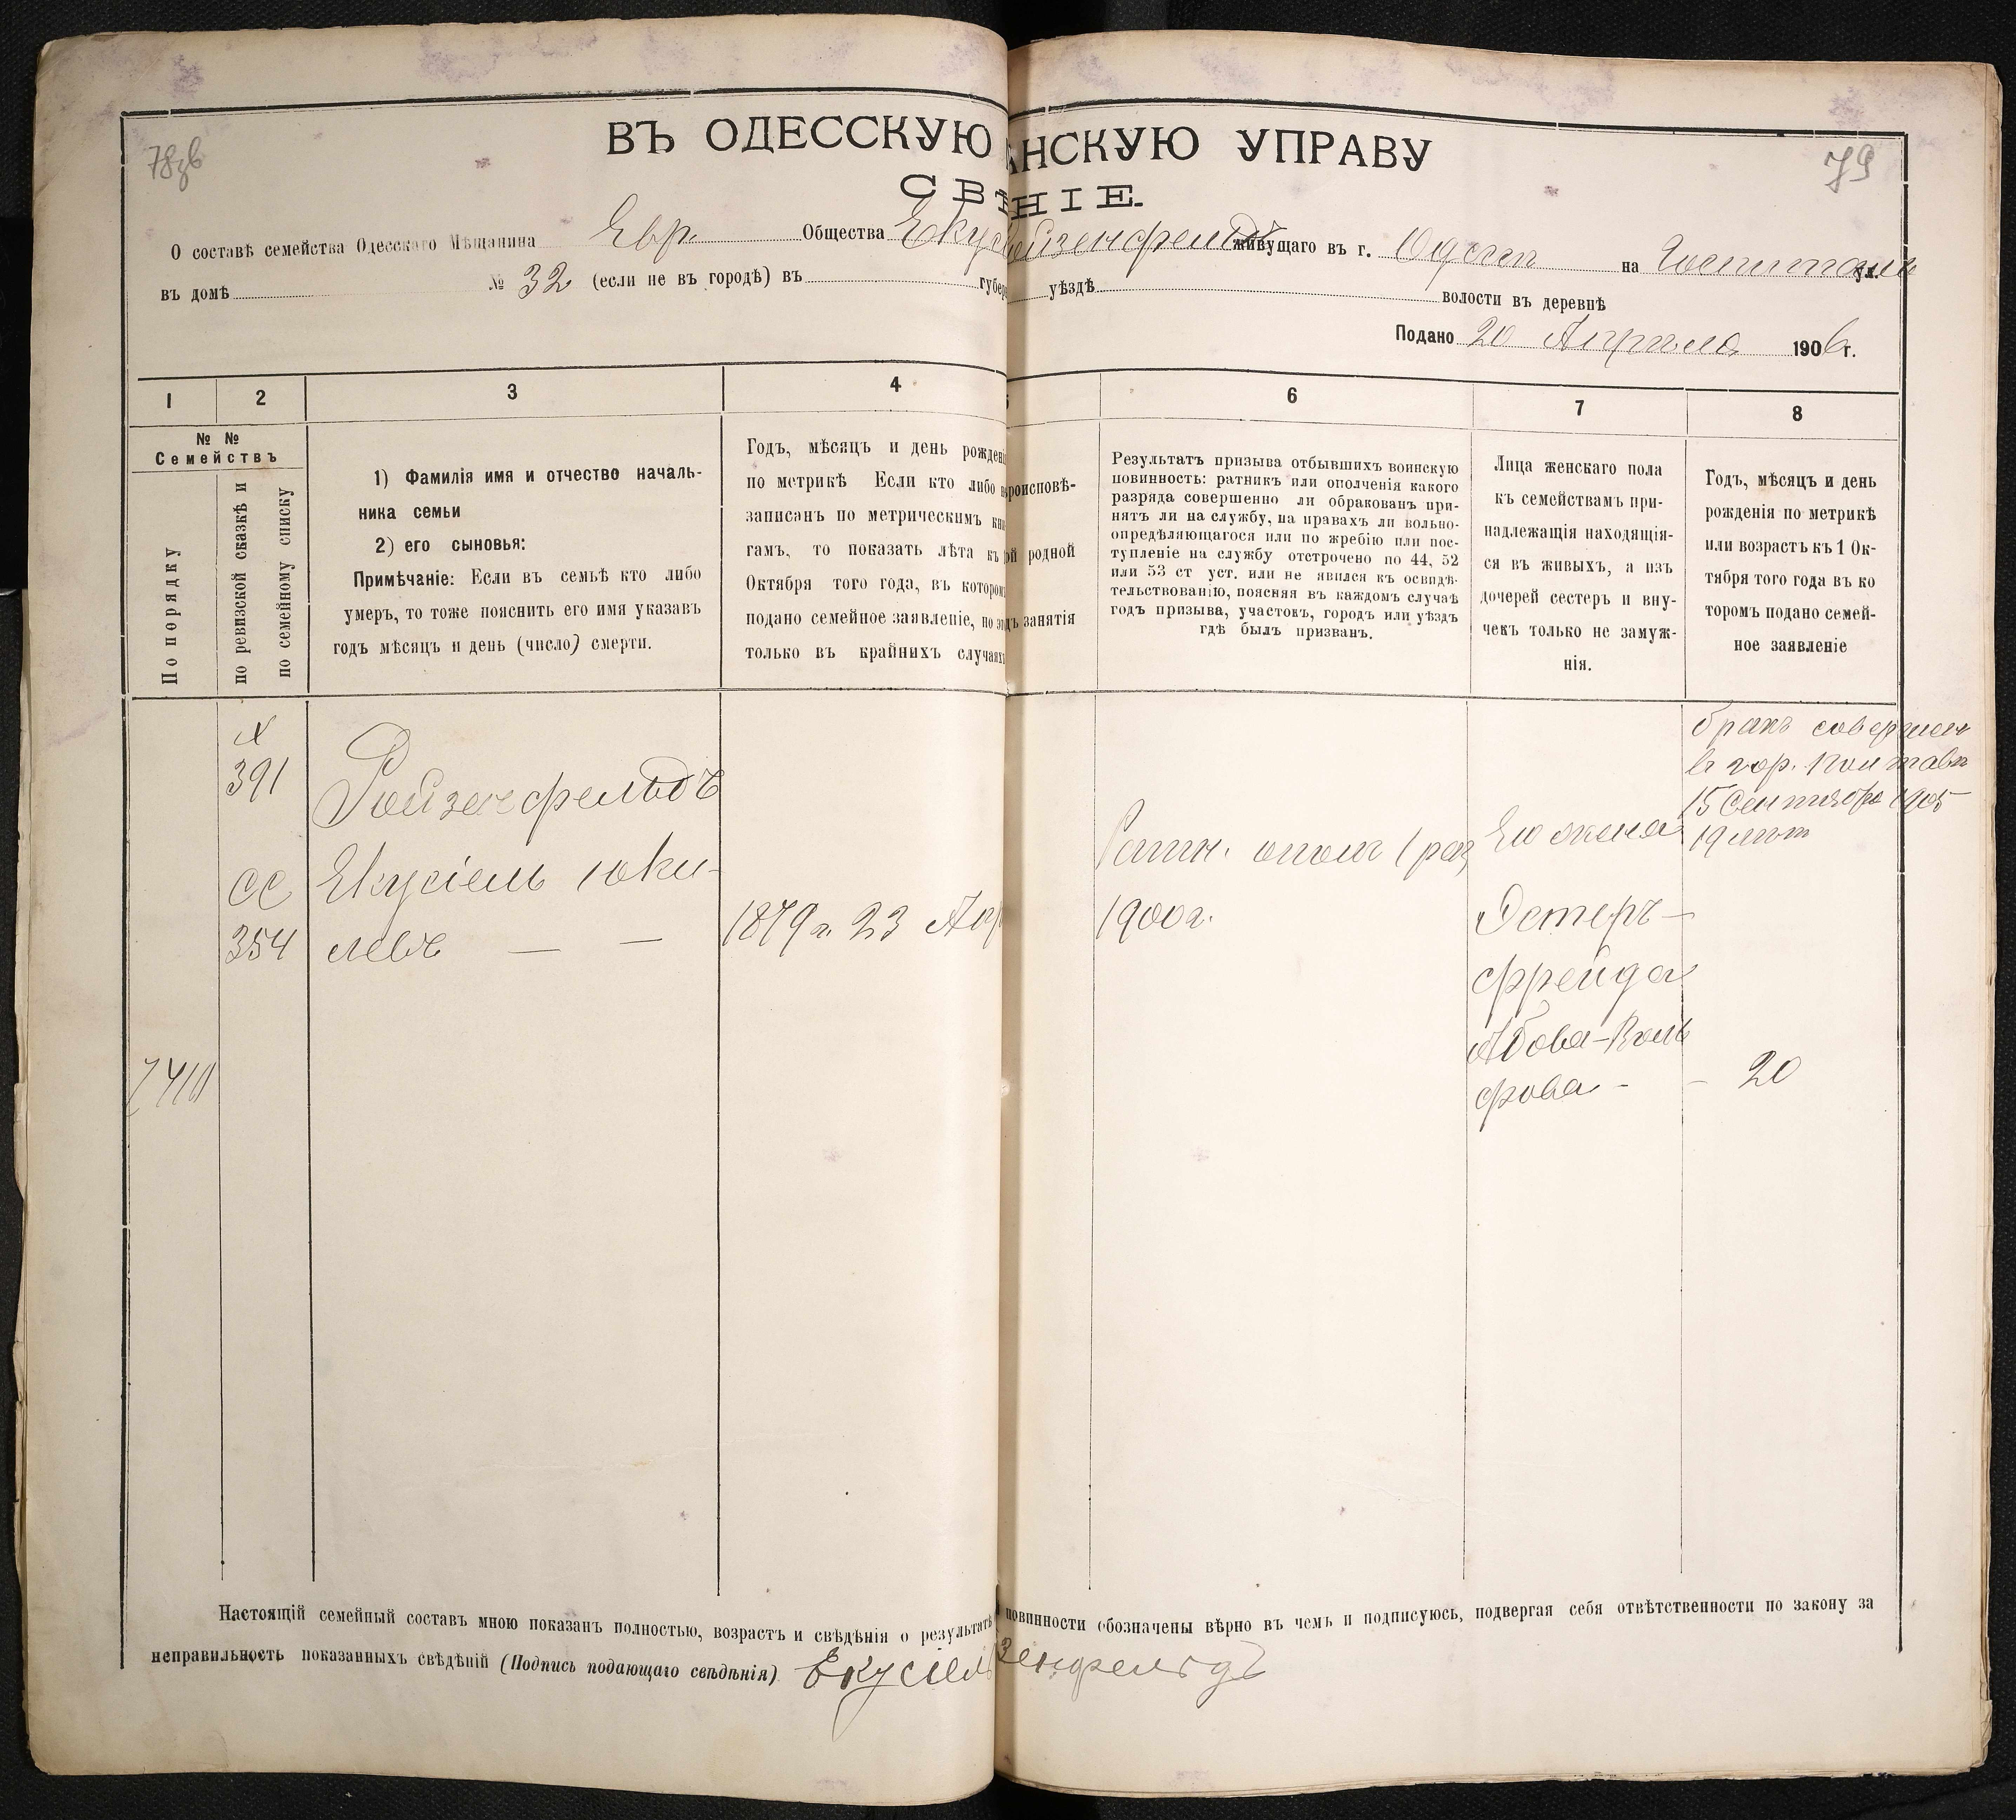 78об
79
ВЪ ОДЕССКУЮ АНСКУЮ УПРАВУ
СВѢНІЕ.
О составѣ семейства Одесскаго Мѣщанина Евр. Общества Екус ойзенфельдъ живущаго въ г. Одессѣ на Госпитальн ул.
въ домѣ № 32 (если не въ городѣ) въ губер уѣздѣ волости въ деревнѣ
Подано 20 Апрѣля 1906 г.
1 2 3 4 5 6 7 8
№ №
Семействъ
По порядку
по ревизской сказкѣ и
по семейному списку
1) Фамилія имя и отчество началь-
ника семьи
2) его сыновья:
Примѣчаніе: Если въ семьѣ кто либо
умеръ, то тоже пояснить его имя указавъ
годъ мѣсяцъ и день (число) смерти.
Годъ, мѣсяцъ и день рождені
по метрикѣ Если кто либо н
записанъ по метрическимъ кни
гамъ, то показать лѣта къ
Октября того года, въ котором
подано семейное заявленіе, но эт
только въ крайнихъ случаяхъ
роисповѣ-
ой родной
дъ занятія
Результатъ призыва отбывшихъ воинскую
повинность: ратникъ или ополченія какого
разряда совершенно ли обракованъ при-
нятъ ли на службу, на правахъ ли вольно-
опредѣляющагося или по жребію или пос-
тупленіе на службу отстрочено по 44, 52
или 53 ст уст. или не явился къ освидѣ-
тельствованію, поясняя въ каждомъ случаѣ
годъ призыва, участокъ, городъ или уѣздъ
гдѣ былъ призванъ.
Лица женскаго пола
къ семействамъ при-
надлежащія находящія-
ся въ живыхъ, а изъ
дочерей сестеръ и вну-
чекъ только не замуж-
нія.
Годъ, мѣсяцъ и день
рожденія по метрикѣ
или возрастъ къ 1 Ок-
тября того года въ ко
торомъ подано семей-
ное заявленіе
391
354
Ройзенфельдъ
Екусіель Юки-
левъ — —
1879 г. 23 Апр
Ратн. опол 1 раз
1900 г.
Его жена
Эстеръ-
Фрейда
Абова-Воль
фова - - 20
бракъ совершен
въ гор. Полтавѣ
15 Сентября 1905
19 лѣт
Настоящій семейный составъ мною показанъ полностью, возрастъ и свѣдѣнія о результатѣ повинности обозначены вѣрно въ чемъ и подписуюсь, подвергая себя отвѣтственности по закону за
неправильность показанныхъ свѣдѣній (Подпись подающаго свѣдѣнія) Екусіель зенфельдъ